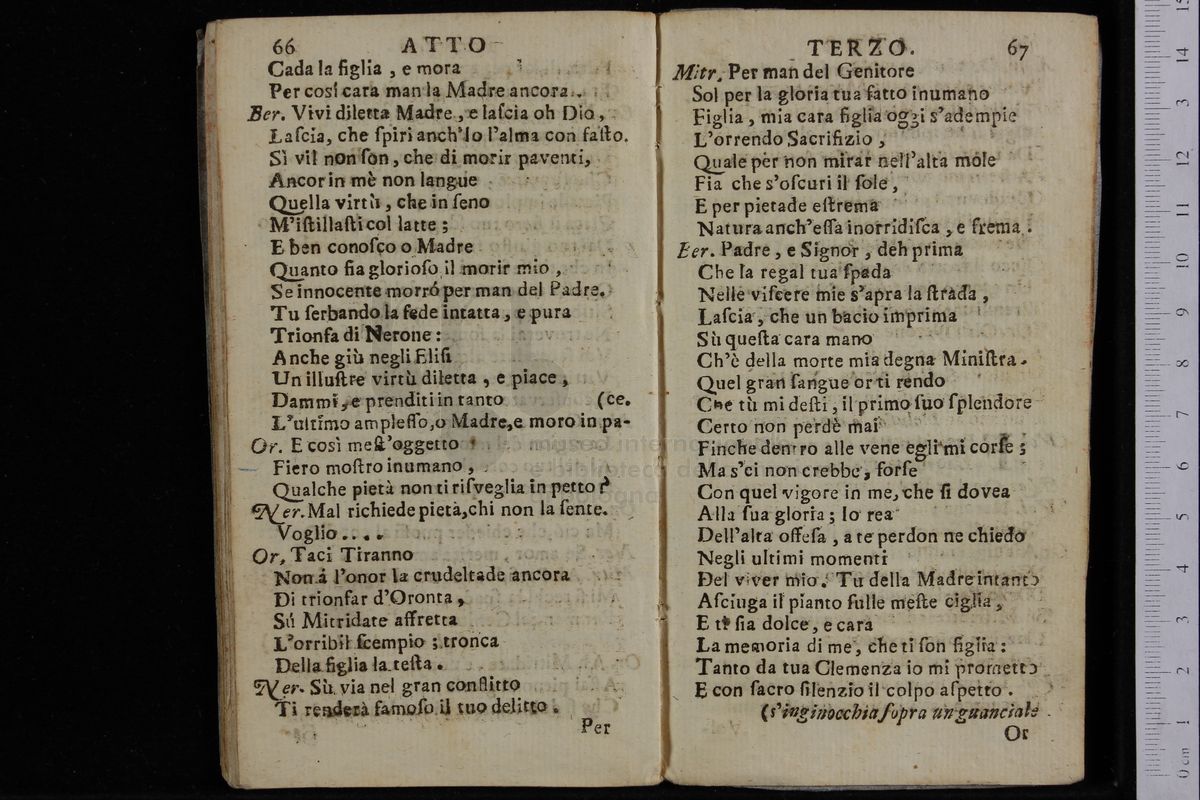 66 ATTO
Cada la figlia , e mora
Per così cara man la Madre ancora .
Ber. Vivi diletta Madre , e laſcia oh Dio ,
Laſcia, che ſpiri anch'Io l'alma con faſto.
Sì vil non ſon , che di morir paventi,
Ancor in mè non langue
Quella virtù , che in ſeno
M'iſtillaſti col latte ;
E ben conoſco o Madre
Quanto ſia glorioſo il morir mio ,
Se innocente morró per man del Padre.
Tu ſerbando la fede intatta , e pura
Trionfa di Nerone :
Anche giù negli Eliſi
Un illuſtre virtù diletta , e piace ,
Dammi , e prenditi in tanto (ce.
L'ultimo ampleſſo,o Madre,e moro in pa-
Or. E così meſt'oggetto
Fiero moſtro inumano ,
Qualche pietà non ti riſveglia in petto ?
Ner. Mal richiede pietà,chi non la ſente.
Voglio . . . .
Or, Taci Tiranno
Non á l'onor la crudeltade ancora
Di trionfar d'Oronta ,
Sú Mitridate affretta
L'orribil ſcempio ; tronca
Della figlia la teſta .
Ner. Sù via nel gran conflitto
Ti renderà famoſo il tuo delitto .
Per
TERZO. 67
Mitr. Per man del Genitore
Sol per la gloria tua fatto inumano
Figlia , mia cara figlia oggi s'adempie
L'orrendo Sacrifizio ,
Quale per non mirar nell'alta mole
Fia che s'oſcuri il ſole ,
E per pietade eſtrema
Natura anch'eſſa inorridiſca , e frema .
Ber. Padre , e Signor , deh prima
Che la regal tua ſpada
Nelle viſcere mie s'apra la ſtrada ,
Laſcia , che un bacio imprima
Sù queſta cara mano
Ch'è della morte mia degna Miniſtra .
Quel gran ſangue or ti rendo
Che tù mi deſti , il primo ſuo ſplendore
Certo non perdè mai
Finche dentro alle vene egli mi corſe ;
Ma s'ei non crebbe , forſe
Con quel vigore in me, che ſi dovea
Alla ſua gloria ; Io rea
Dell'alta offeſa , a te perdon ne chiedo
Negli ultimi momenti
Del viver mio . Tu della Madre intanto
Aſciuga il pianto ſulle meſte ciglia ,
E ti ſia dolce , e cara
La memoria di me , che ti ſon figlia :
Tanto da tua Clemenza io mi prometto
E con ſacro ſilenzio il colpo aſpetto .
(s'inginocchia ſopra un guanciale .
Or